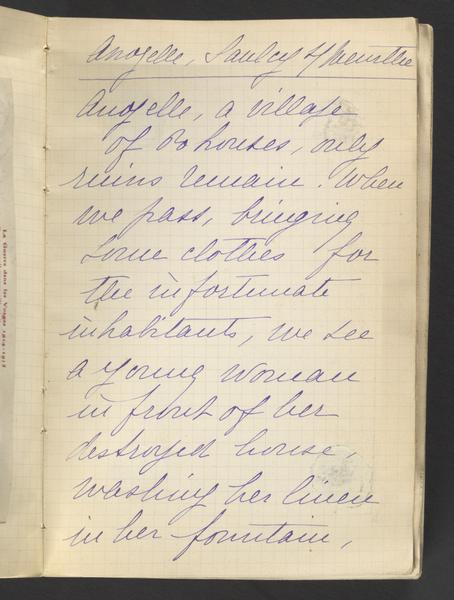 Anozelle, Saulcy s/ Meurthe
Anozelle, a village
of 80 houses, only
ruins remain. When
we pass, bringing
some clothes for
the infortunate
inhabitants, we see
a young woman
in front of her
destroyed house,
washing her linen
in her fountain,
La Guerre dans les Vosges 1914-1915